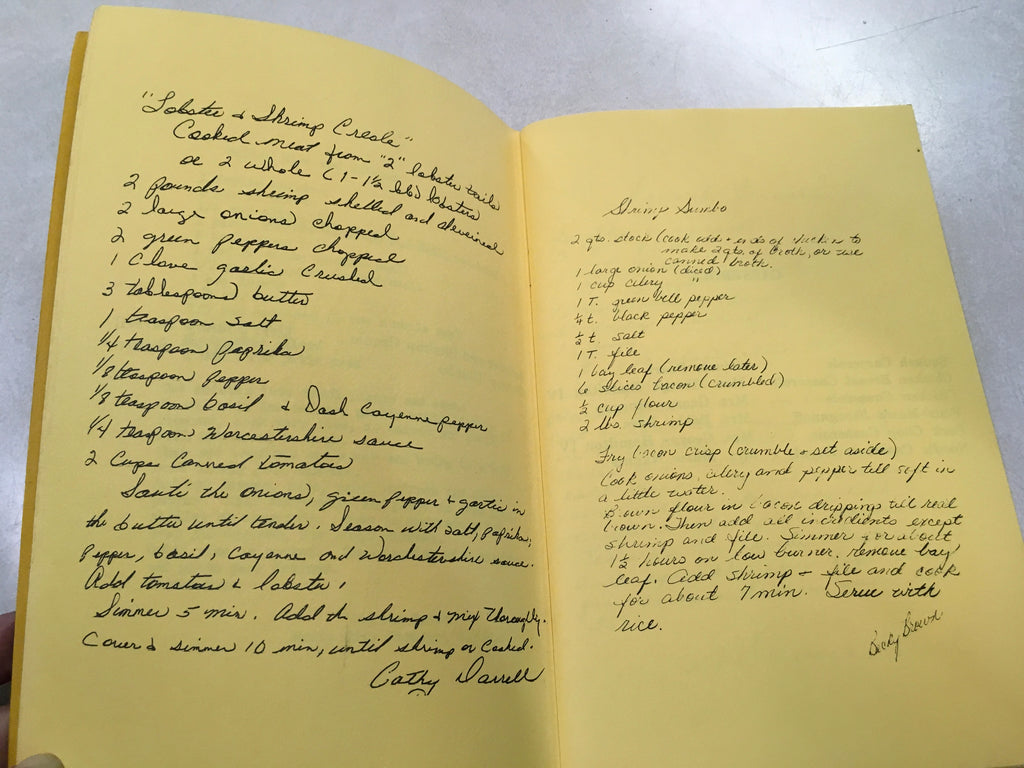 "Lobster & Shrimp Creole"
Cooked meat from "2" lobster tails
or 2 whole (1-1½ lbs) lobsters
2 pounds shrimp shelled and deveined
2 large onions chopped
2 green peppers chopped
1 clove garlic crushed
3 tablespoons butter
1 teaspoon salt
1/4 teaspoon paprika
1/8 teaspoon pepper
1/8 teaspoon basil & Dash Cayenne pepper
1/4 teaspoon Worcestershire sauce
2 cups canned tomatoes
Sauté the onions, green pepper & garlic in
the butter until tender. Season with salt, paprika,
pepper, basil, cayenne and Worchestershire sauce.
Add tomatoes & lobster.
Simmer 5 min. Add the shrimp & mix thoroughly.
Cover & simmer 10 min, until shrimp or cooked.
Cathy Darrell
Shrimp Gumbo
2 qts. stock (cook odds + ends of chicken to
make 2 qts. of broth, or use
canned broth.
1 large onion (diced)
1 cup celery "
1 T. green bell pepper
¼ t. black pepper
½ t. salt
1 T. file
1 bay leaf (remove later)
6 slices bacon (crumbled)
½ cup flour
2 lbs. shrimp
Fry bacon crisp (crumble + set aside)
Cook onions, celery and pepper till soft in
a little water.
Brown flour in bacon drippings till real
brown. Then add all ingredients except
shrimp and file. Simmer for about
1½ hours on low burner. remove bay
leaf. Add shrimp + file and cook
for about 7 min. Serve with
rice.
Becky Brown